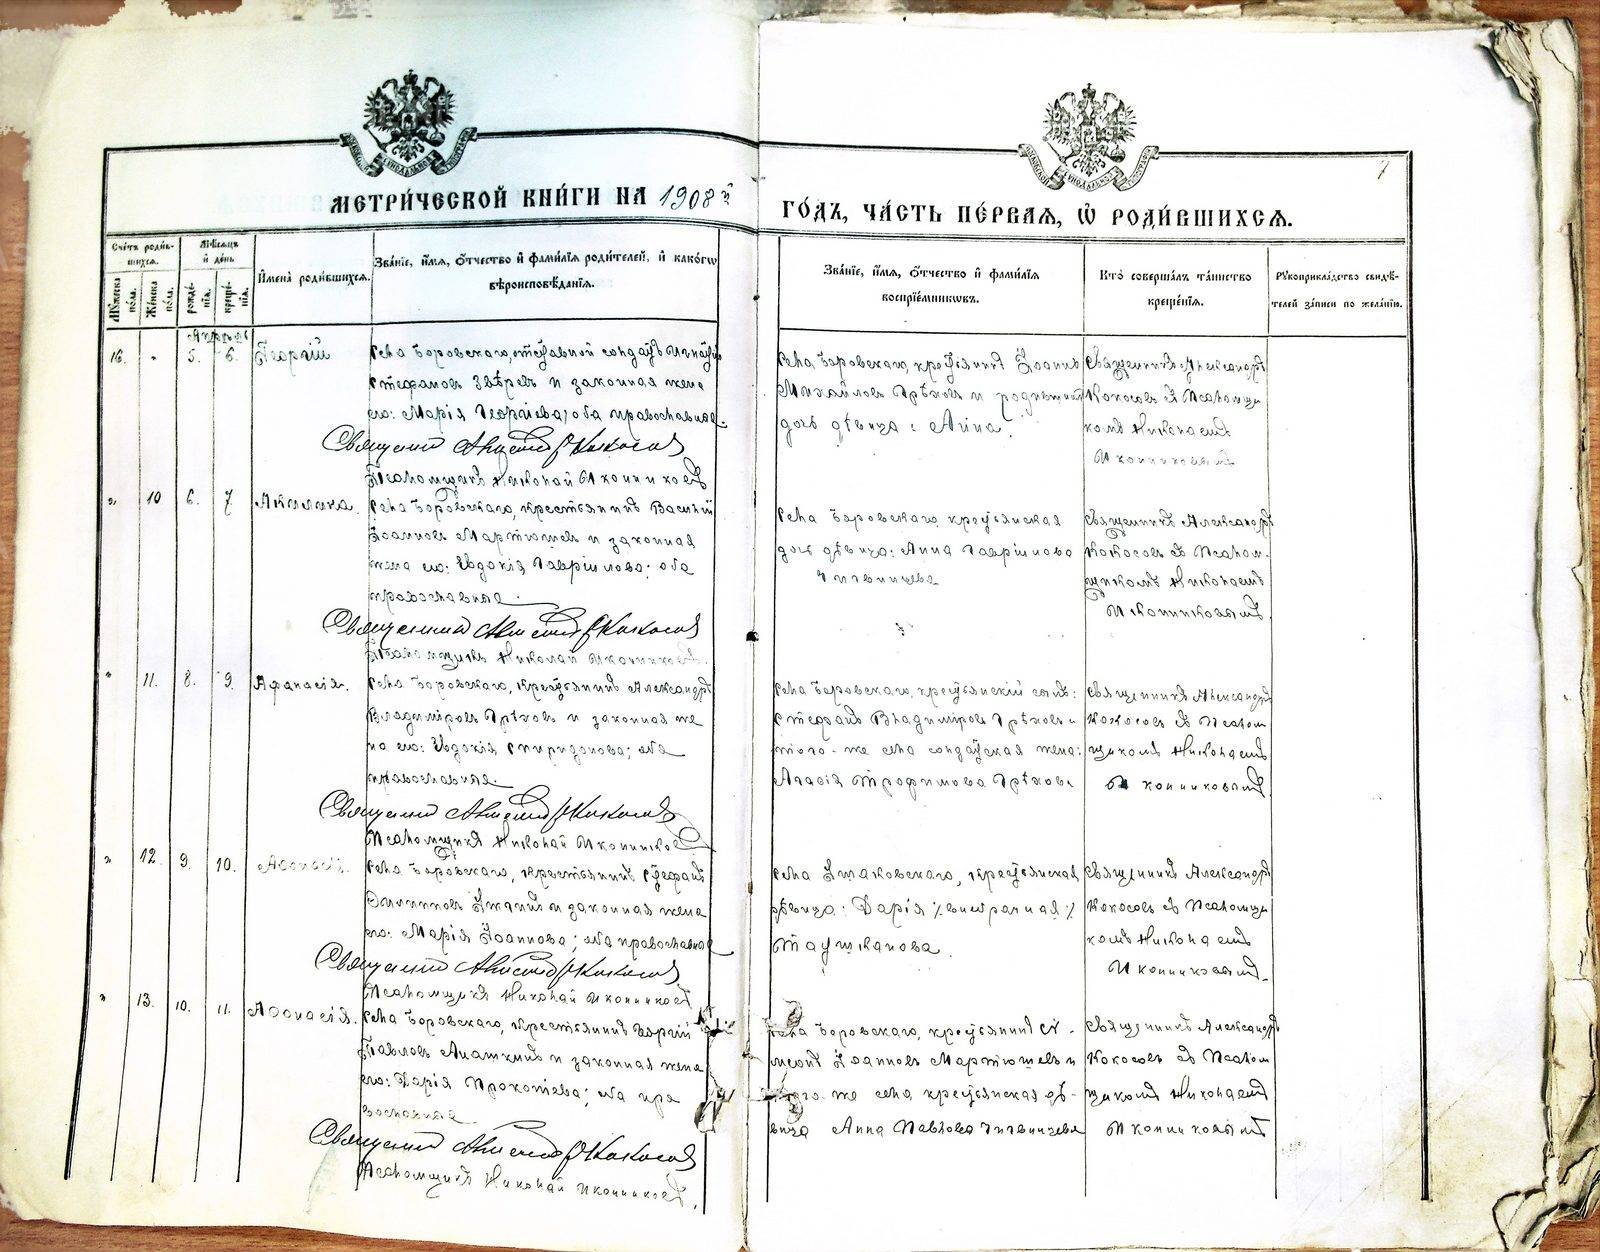 МЕТРИ́ЧЕСКОЙ КНИ́ГИ НА 1908 й
ГО́ДЪ, ЧА́СТЬ ПЕ́РВАѦ, Ѡ РОДИ́ВШИХСѦ.
7
Сче́тъ роди́в-
шихсѧ.
Мꙋ́жеска по́ла.
Же́нска по́ла.
Мѣ́сѧцъ
и де́нь
рожде́-
нїѧ.
креще́-
нїѧ.
Имена̀ роди́вшихсѧ.
Зва́нїе, и́мѧ, ѻ́тчество и фами́лїѧ роди́телей, и како́гѡ
вѣроисповѣ́данїѧ.
Зва́нїе, и́мѧ, ѻ́тчество и фами́лїѧ
воспрїе́мникѡвъ.
Кто̀ соверша́лъ та́инство
креще́нїѧ.
Рꙋкоприкла́дство свидѣ́-
телей за́писи по жела́нїю.
Апрель
16. " 5. 6. Георгій
Села Боровскаго, отставной солдатъ Игнатій
Стефановъ Звѣревъ и законная жена
его: Марія Георгіева; оба православные.
Священникъ Александръ Кокосовъ
Псаломщикъ Николай Иконниковъ
Села Боровскаго, крестьянинъ Іоаннъ
Михайловъ Грѣховъ и родный
дочь дѣвица: Анна.
Священникъ Александръ
Кокосовъ съ Псаломщи
комъ Николаемъ
Иконниковымъ
" 10 6. 7 Акилина.
Села Боровскаго, крестьянинъ Василій
Іоанновъ Мартюшевъ и законная
жена его: Евдокія Гавріилова; оба
православные.
Священникъ Александръ Кокосовъ
Псаломщикъ Николай Иконниковъ.
Села Боровскаго крестьянская
дочь дѣвица: Анна Гавріилова
Священникъ Александръ
Кокосовъ съ Псалом-
щикомъ Николаемъ
Иконниковымъ.
" 11. 8. 9. Афанасія.
Села Боровскаго, крестьянинъ Александръ
Владиміровъ Грѣховъ и законная же
на его: Евдокія Спиридонова; оба
православные.
Священникъ Александръ Кокосовъ
Псаломщикъ Николай Иконниковъ
Села Боровскаго, крестьянскій сынъ:
Стефанъ Владиміровъ Грѣховъ и
того-же села солдатская жена:
Агафія Трофимова Грѣхова
Священникъ Александръ
Кокосовъ съ Псалом
щикомъ Николаемъ
Иконниковымъ.
" 12. 9. 10. Аѳонасія.
Села Боровскаго, крестьянинъ Стефанъ
и законная жена
его: Марія Іоаннова; оба православные
Священникъ Александръ Кокосовъ
Псаломщикъ Николай Иконниковъ
крестьянская
дѣвица: Дарія
Таушканова.
Священникъ Александръ
Кокосовъ съ Псаломщи
комъ Николаемъ
Иконниковымъ.
" 13. 10. 11. Аѳонасія.
Села Боровскаго, крестьянинъ Георгій
Павловъ и законная жена
его: Дарія Прокопіева; оба пра
вославные
Священникъ Александръ Кокосовъ
Псаломщикъ Николай Иконниковъ.
Села Боровскаго, крестьянинъ Сѵ-
меонъ Іоанновъ Мартюшевъ и
того же села крестьянская дѣ-
вица Анна Павлова
Священникъ Александръ
Кокосовъ съ Псалом
щикомъ Николаемъ
Иконниковымъ